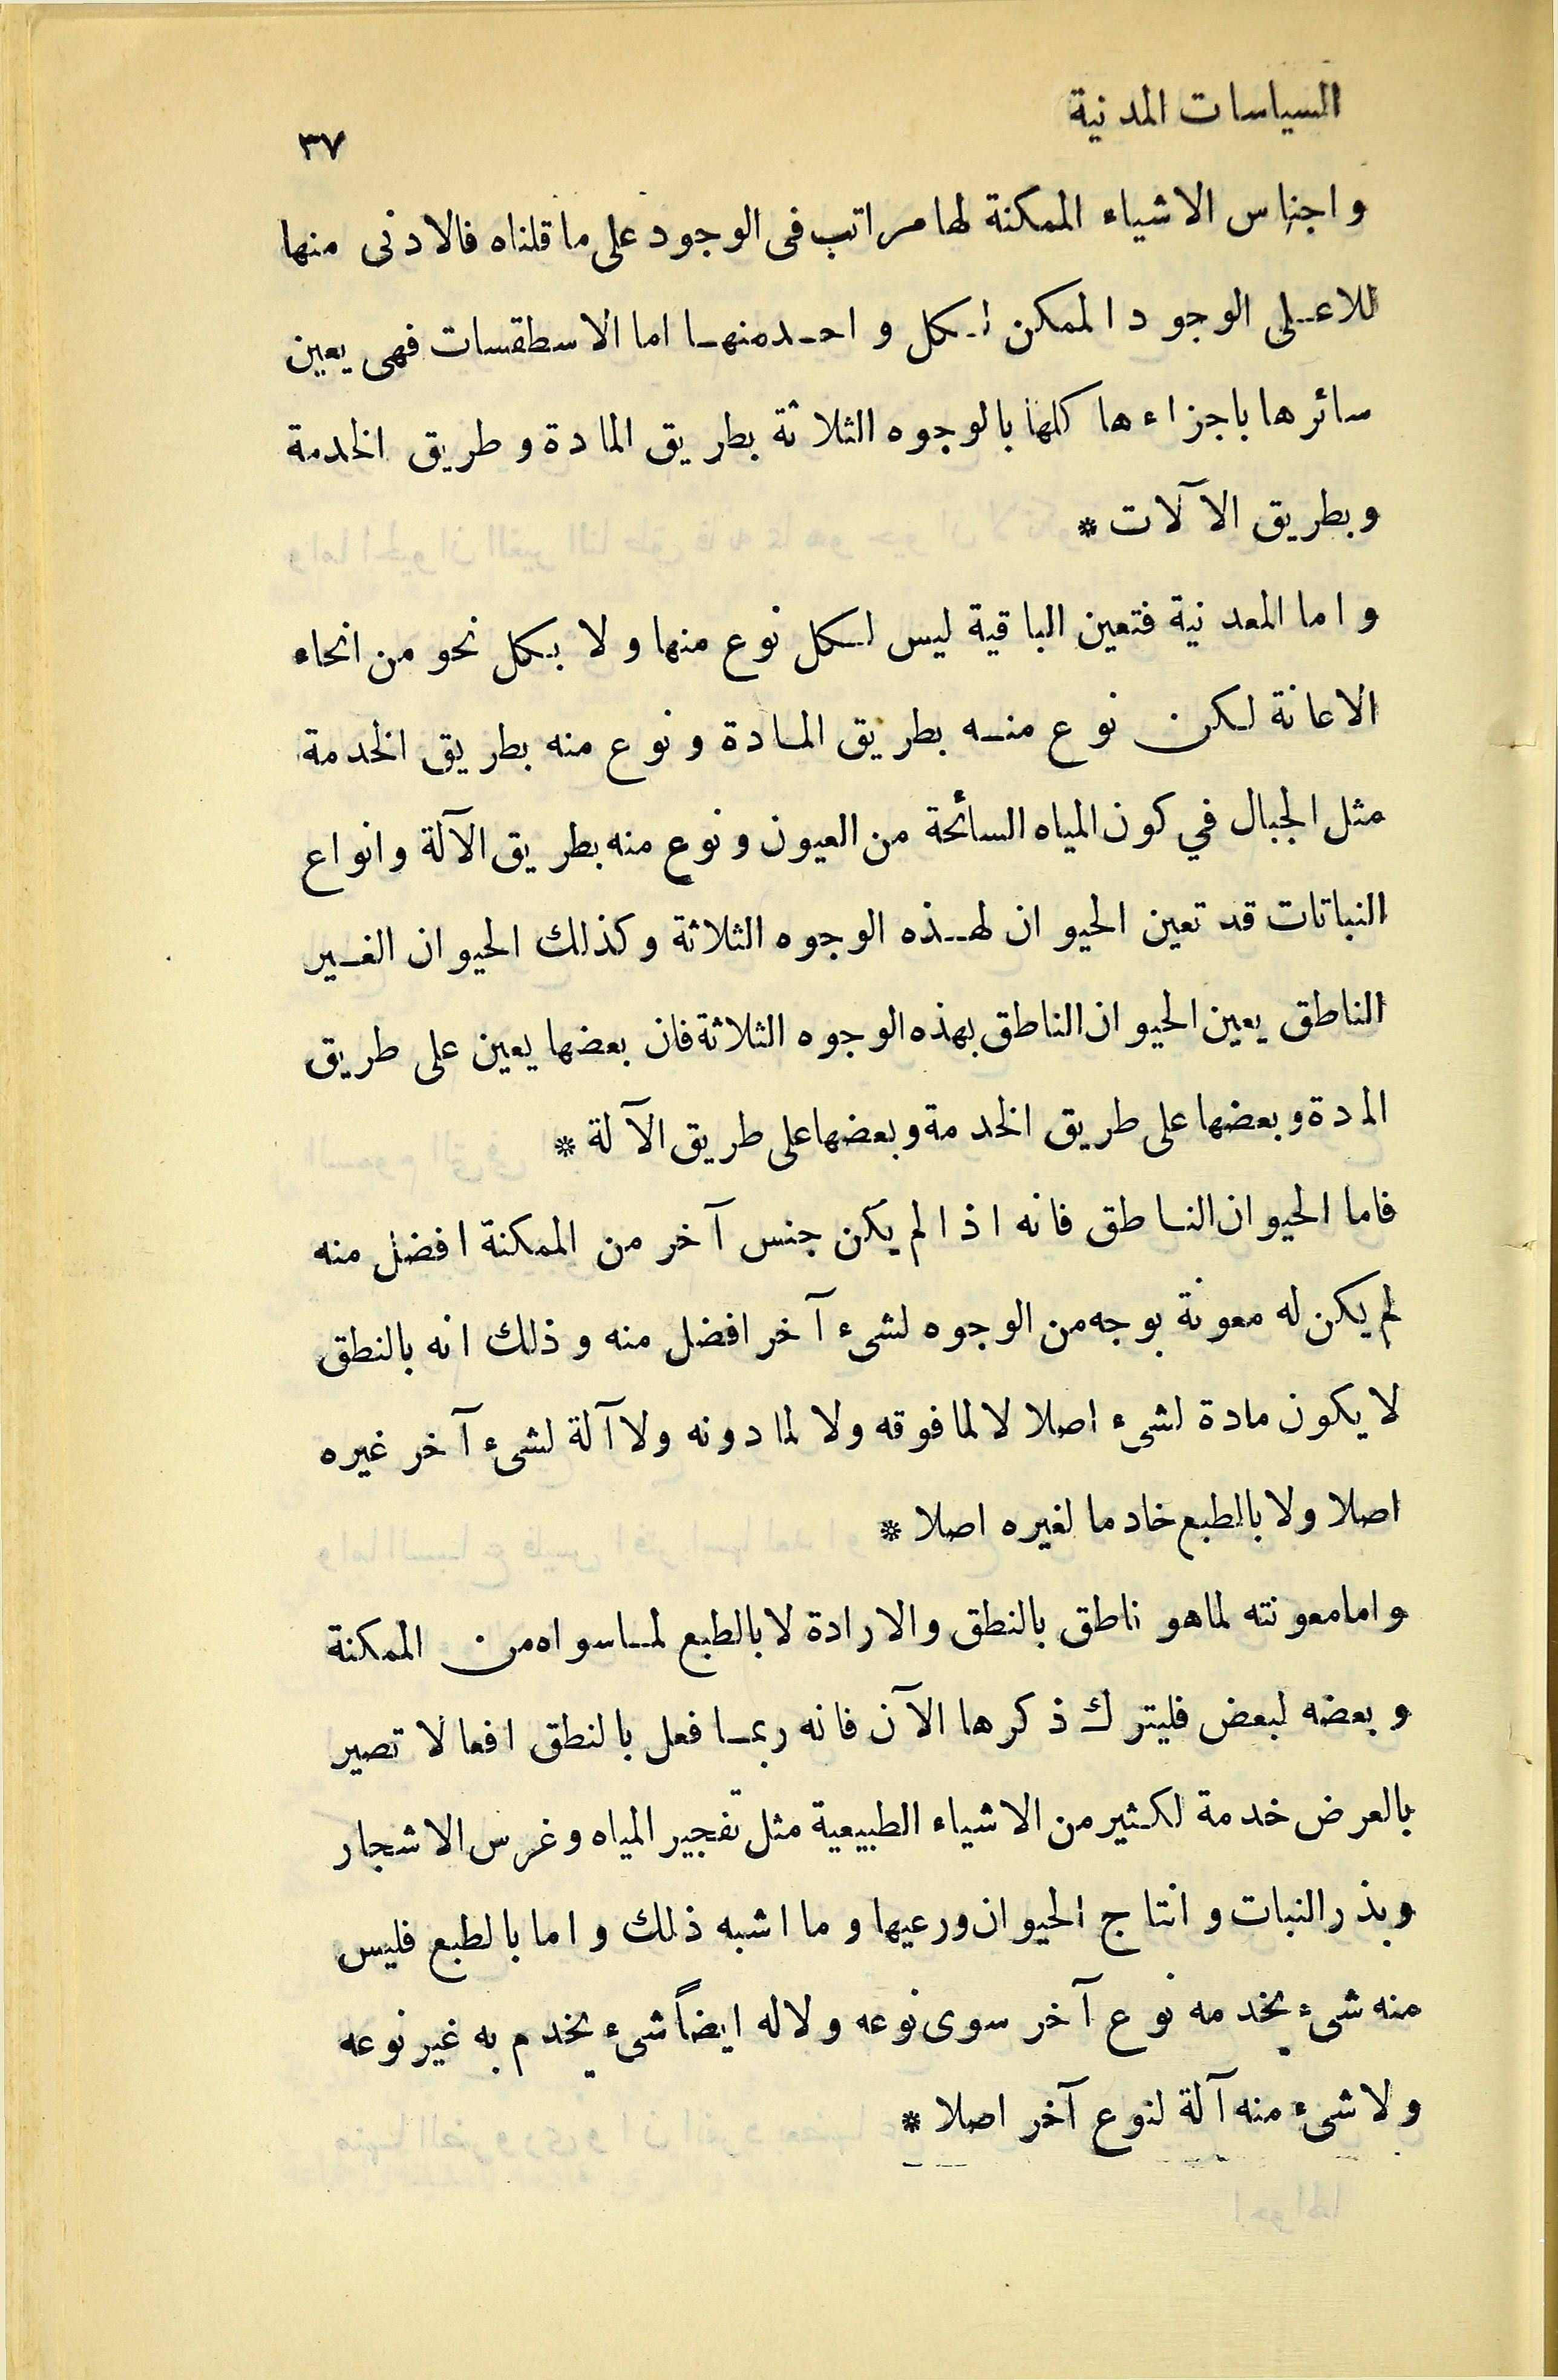 السياسات المدنية
٣٧
واجناس الاشياء الممكنة لها مراتب فى الوجود على ما قلناه فالادنى منها
للاعلى الوجود الممكن لكل واحد منها اما الاسطقسات فهى يعين
سائرها باجزاءها كلها بالوجوه الثلاثة بطريق المادة وطريق الخدمة
وبطريق الآلات *
واما المعدنية فتعين الباقية ليس لكل نوع منها ولا بكل نحو من انحاء
الاعانة لكن نوع منه بطريق المادة ونوع منه بطريق الخدمة
مثل الجبال في كون المياه السائحة من العيون ونوع منه بطريق الآلة وانواع
النباتات قد تعين الحيوان لهذه الوجوه الثلاثة وكذلك الحيوان الغير
الناطق يعين الحيوان الناطق بهذه الوجوه الثلاثة فان بعضها يعين على طريق
المدة وبعضها على طريق الخدمة وبعضها على طريق الآلة *
فاما الحيوان الناطق فانه اذا لم يكن جنس آخر من الممكنة افضل منه
لم يكن له معونة بوجه من الوجوه لشىء آخر افضل منه وذلك انه بالنطق
لا يكون مادة لشىء اصلا لا لما فوقه ولا لما دونه ولا آلة لشىء آخر غيره
اصلا ولا بالطبع خادما لغيره اصلا *
واما معونته لما هو ناطق بالنطق والارادة لا بالطبع لما سواه من الممكنة
وبعضه لبعض فليترك ذكرها الآن فانه ربما فعل بالنطق افعالا تصير
بالعرض خدمة لكثير من الاشياء الطبيعية مثل تفجير المياه وغرس الاشجار
وبذر النبات وانتاج الحيوان ورعيها وما اشبه ذلك واما بالطبع فليس
منه شىء يخدمه نوع آخر سوى نوعه ولا له ايضاً شىء يخدم به غير نوعه
ولا شىء منه آلة لنوع آخر اصلا *